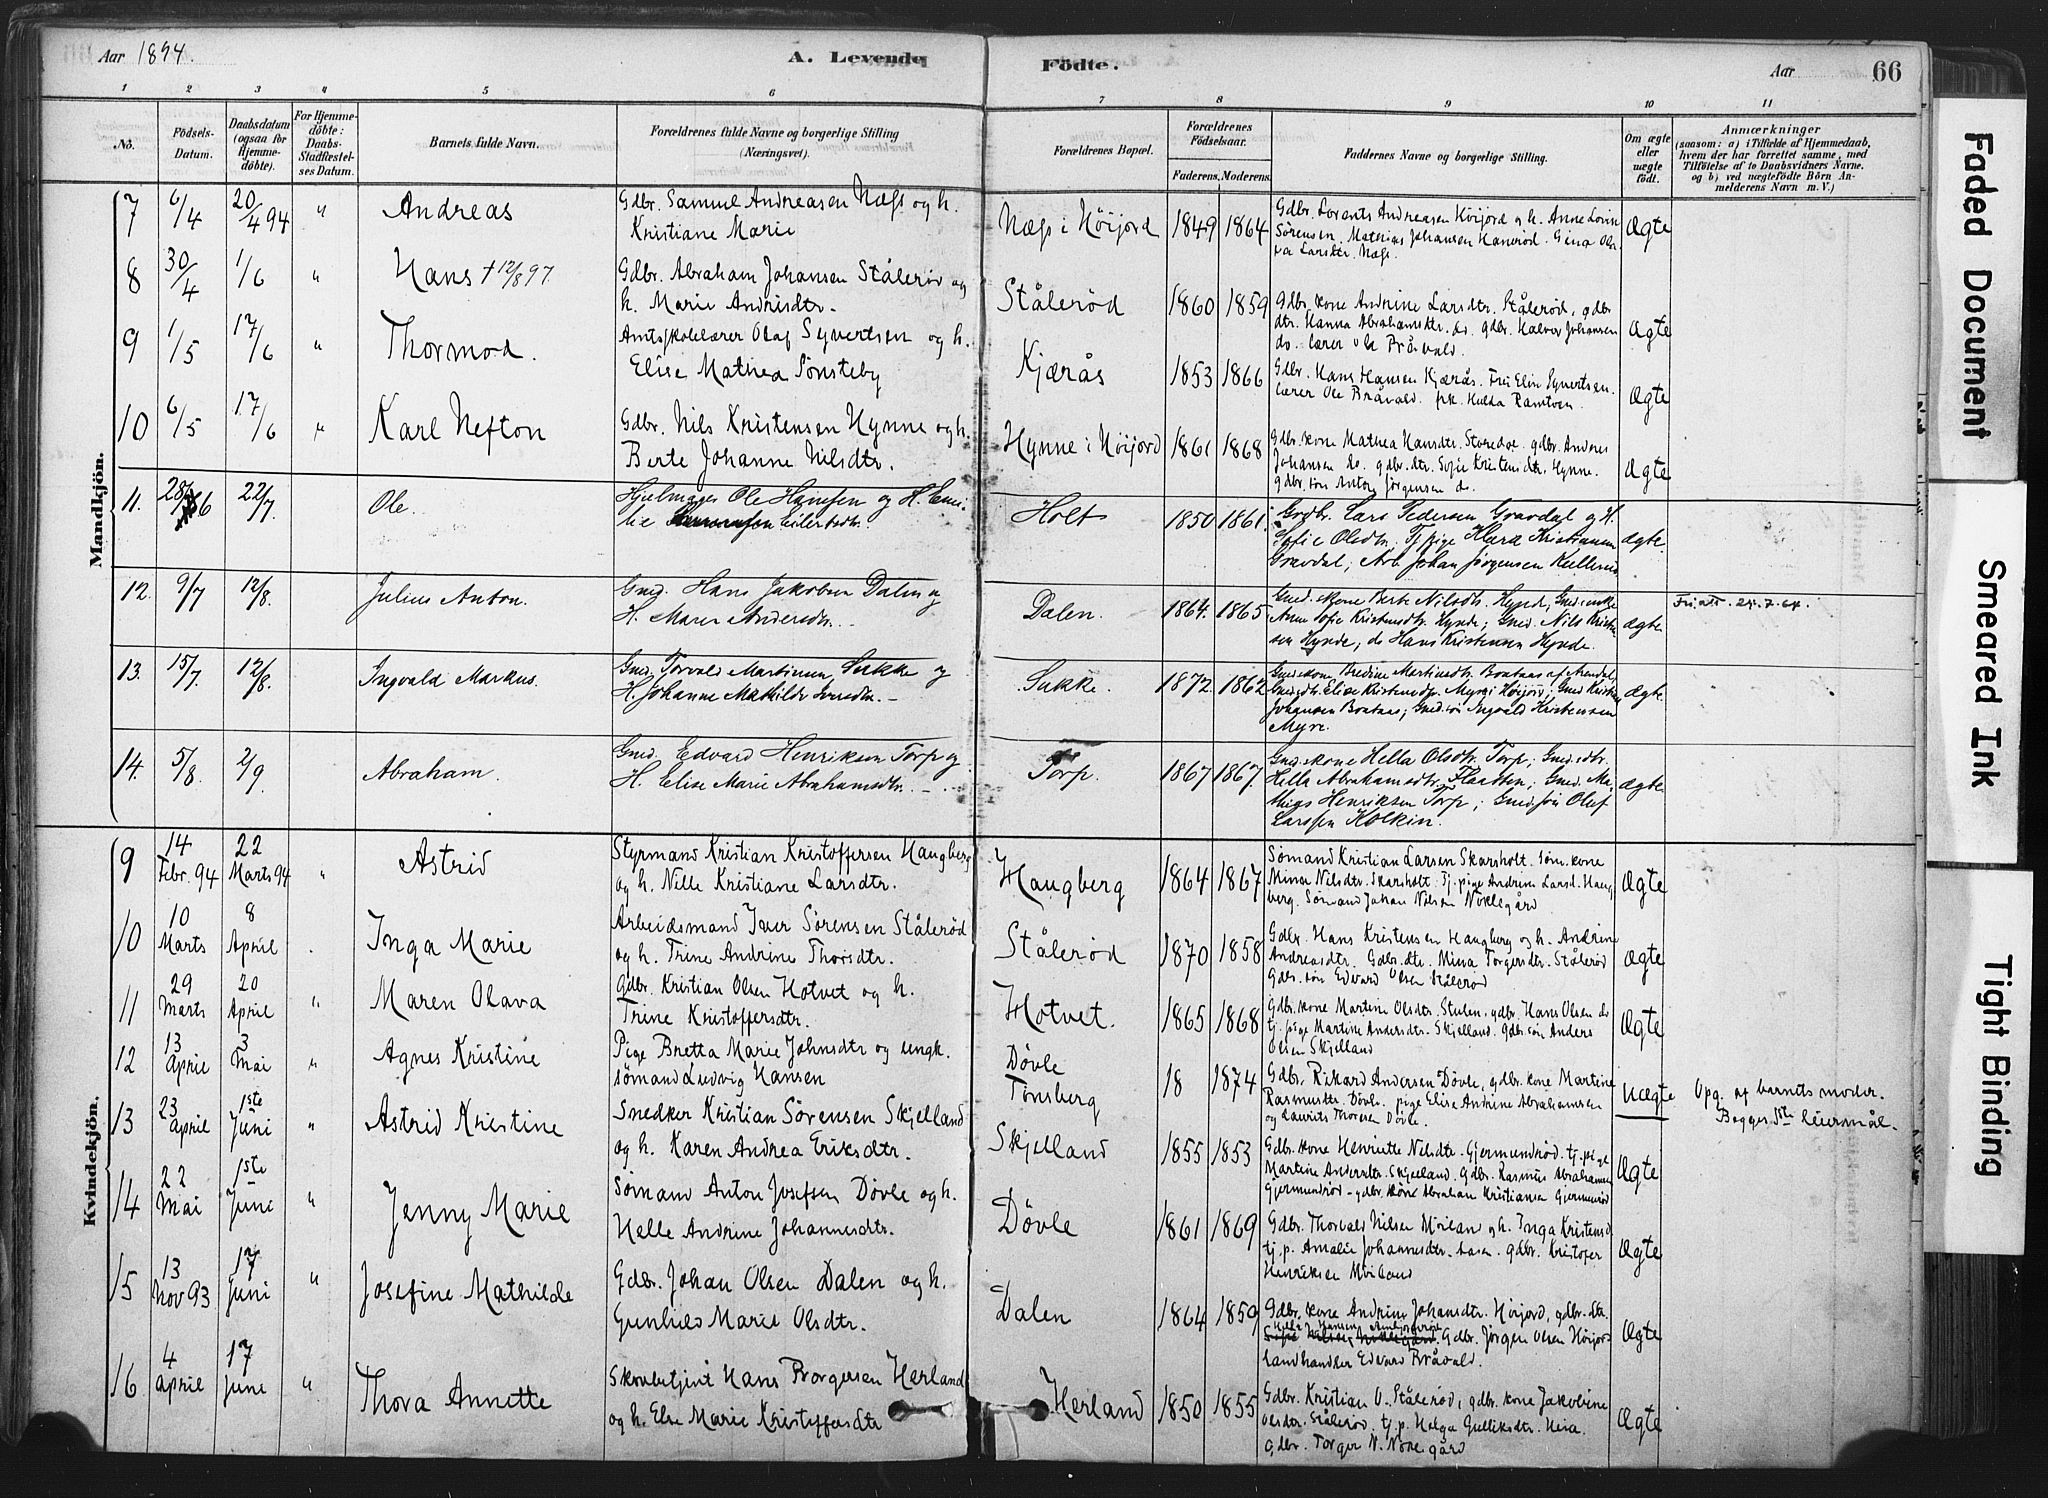 Aar 1894.
A. Levende Födte.
Aar
66
1 2 3 4 5 6 7 8 9 10 11
No.
Födsels-Datum.
Daabsdatum (ogsaa for Hjemmedöbte).
For Hjemmedöbte: Daabs-Stadfæstelses Datum.
Barnets fulde Navn.
Forældrenes fulde Navne og borgerlige Stilling (Næringsvei).
Forældrenes Bopæl.
Forældrenes Födselsaar.
Faderens. Moderens.
Faddernes Navne og borgerlige Stilling.
Om ægte eller uægte födt.
Anmærkninger
(saasom: a) i Tilfælde af Hjemmedaab, hvem der har forrettet samme, med Tilföielse af to Daabsvidners Navne, og b) ved uægtefödte Börn Anmelderens Navn m. V.)
Mandkjön.
7 6/4 20/4 94 " Andreas
Gdbr. Samuel Andreasen Næss og h.
Kristiane Marie
Næss i Höijord 1849 1864
Gdbr. Lorents Andreasen Höijord og h. Anne Lovise
Sörensen. Mathias Johansen
Larsdtr. Næss.
Ægte
8 30/4 1/6 " Hans † 12/8 97.
Gdbr. Abraham Johansen Ståleröd og
h. Marie Andrisdtr.
Ståleröd 1860 1859
Gdbr. kone Andrine Larsdtr. Stålerød, gdbr
dtr. Hanna Abrahamsdtr. do. gdbr. Halvor Johansen
do. lærer Ole Bråvald.
Ægte
9 1/5 17/6 " Thormod.
Amtsskolelærer Olaf Syvertsen og h.
Elise Mathea Sönsteby
Kjærås 1853 1866
Gdbr. Hans Hansen Kjærås. Fru Elin Syvertsen.
lærer Ole Bråvald. frk. Hulda Ramtven.
Ægte
10 6/5 17/6 " Karl Nefton
Gdbr. Nils Kristensen Hynne og h.
Berte Johanne Nilsdtr.
Hynne i Höijord 1861 1868
Gdbr. kone Mathea Hansdtr. gdbr. Andreas
Johansen do. gdbr. dtr. Sofie Kristensdtr. Hynne.
gdbr. sön Anton Jörgensen do.
Ægte
11. 28/6 22/7. Ole.
Hjulmager Ole Hansen og H. Emilie
Eilertsdtr.
Holt 1850 1861.
Grdbr. Lars Pedersen Gravdal og H.
Sofie Olsdtr. Tj. pige Klara Kristiansen
Gravdal; Arb. Johan Jörgensen Kullerud
ægte.
12. 9/7 12/8. Julius Anton.
Gmd. Hans Jakobsen Dalen og
H. Maren Andersdtr.
Dalen. 1864. 1865
Gmd. skone Berte Nilsdtr. Hynde; Gmd. enke
Anne Sofie Kristensdtr. Hynde; Gmd. Nils Kristen
sen Hynde, do Hans Kristensen Hynde.
ægte.
Friatt. 24.7.64.
13. 15/7 12/8. Ingvald Markus.
Gmd. Torvald Martinsen Sukke og
H. Johanne Mathilde Iversdtr. -
Sukke. 1872. 1862
Gmdskone Bredine Martinsdtr. Bontaas af Arendal,
Gmdsdtr. Elise Kristensdtr. Myre i Höijord; Gmd. Kristian
Johansen Bontaas; Gmd. sön Ingvald Kristensen
Myre.
ægte.
14. 5/8. 2/9. Abraham.
Gmd. Edvard Henriksen Torp og
H. Elise Marie Abrahamsdtr. -
Torp. 1867 1867.
Gmdskone Hella Olsdtr. Torp; Gmdsdtr.
Hella Abrahamsdtr. Flaatten; Gmd. Ma-
thias Henriksen Torp; Gmds sön Oluf
Larssen Kolkin.
ægte
Kvindekjön.
9 14 Febr. 94 22 Marts 94 " Astrid
Styrmand Kristian Kristoffersen Haugberg
og h. Nille Kristiane Larsdtr.
Haugberg 1864 1867
Sømand Kristian Larsen Skarsholt. söm. kone
Mina Nilsdtr. Skarsholt. Tj. pige Andrine Larsd. Haug
berg. Sömand Johan Nilsen Noklegård
Ægte
10 10 Marts 8 April . Inga Marie
Arbeidsmand Iver Sörensen Stålerød
og h. Trine Andrine Thorsdtr.
Stålerød 1870 1858
Gdbr. Hans Kristensen Haugberg og h. Andrine
Andreasdtr. Gdbr. dtr. Mina Torgersdtr. Stålerød
Gdbr. sön Edvard Olsen Stålerød
Ægte
11 29 Marts 20 April " Maren Olava
Gdbr. Kristian Olsen Hotvet og h.
Trine Kristoffersdtr.
Hotvet. 1865 1868
Gdbr. kone Martine Olsdtr. Stulen, gdbr. Hans Olsen do
tj. pige Martine Andersdtr. Skjelland. gdbr sön Anders
Olsen Skjelland
Ægte
12 13 April 3 Mai " Agnes Kristine
Pige Bretta Marie Johnsdtr og ungk.
sömand Ludvig Hansen
Døvle
Tönsberg 18 1874
Gdbr. Rikard Andersen Dövle, gdbr. kone Martine
Rasmusdtr. Dövle. pige Elise Andrine Abrahamsen
og Laurits Thoresen Dövle.
Uægte
Opg. af barnets moder.
Begges 1ste leiermål.
13 23 April 1ste Juni " Astrid Kristine
Snedker Kristian Sörensen Skjelland
og h. Karen Andrea Eriksdtr.
Skjelland 1855 1853
Gdbr. kone Henriette Nilsdtr. Gjermundröd. tj. pige
Martine Andersdtr. Skjelland. Gdbr. Rasmus Abrahamsen
Gjermundröd - gdbr. sköne Abrahan Kristiansen Gjermunröd
Ægte
14 22 Mai 1ste Juni " Jenny Marie
Sömand Anton Josefsen Dövle og h.
Helle Andrine Johannesdtr.
Dövle 1861 1869
Gdbr. Thorvald Nilsen Möiland og h. Inga Kristensd
tj. p. Amalie Johannesdtr. Aasen. gdbr. Kristofer
Henriksen Möiland
Ægte
15 13 Nov 93 17 Juni " Josefine Mathilde
Gdbr. Johan Olsen Dalen og h.
Gunhild Marie Olsdtr.
Dalen 1864 1859
Gdbr. kone Andrine Johansdtr. Höijord, gdbr. dtr.
Helle Hansen
Gdbr. Jörgen Olsen Höijord
landhandler Edvard Bråvald.
Ægte
16 4 April 17 Juni " Thora Annette
Skovbetjent Hans Borgersen Herland
og h. Else Marie Kristoffersdtr
Herland 1850 1855
Gdbr. Kristian O. Stålerød, gdbr. kone Jakobine
Olsdtr. Stålerød. tj. p. Helga Gulliksdtr.
Gdbr. Torger N. Nöklegård
Ægte
Faded Document
Smeared Ink
Tight Binding